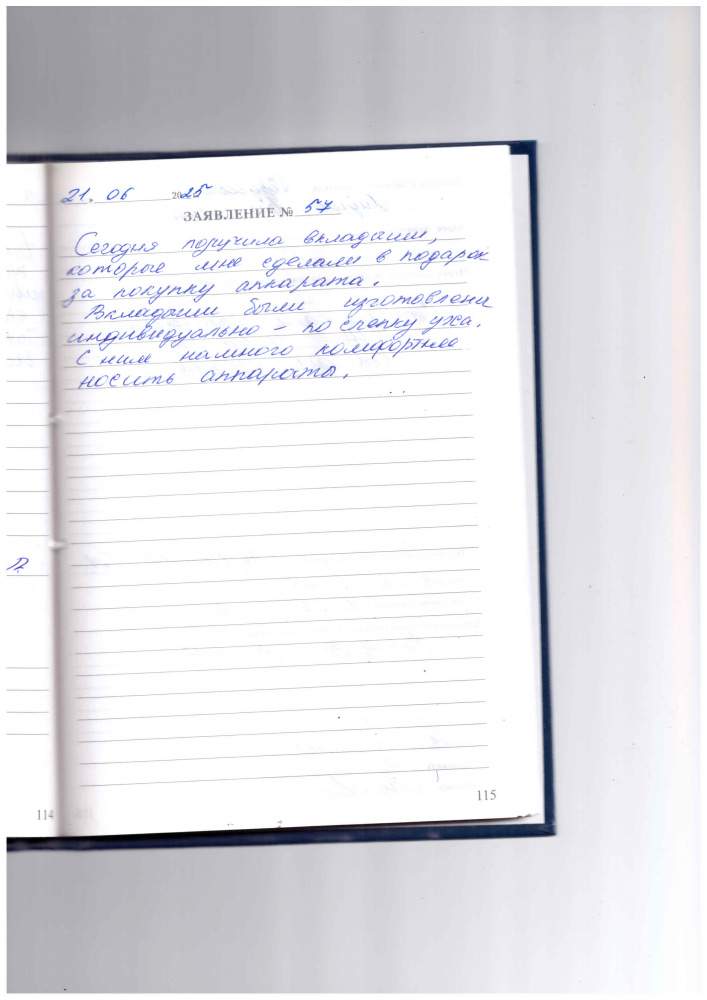 21. 06 2025
ЗАЯВЛЕНИЕ № 57
Сегодня поручила вкладыши,
которые мне сделали в подарок
за покупку аппарата.
Вкладыши были изготовлени
индивидуально – по слепку уха.
С ним намного комфортнее
носить аппараты.
114
115